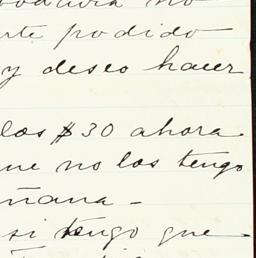 no
rte podido
y deseo hacer
los $30 ahora
ue no los tengo
ñana -
si tengo que